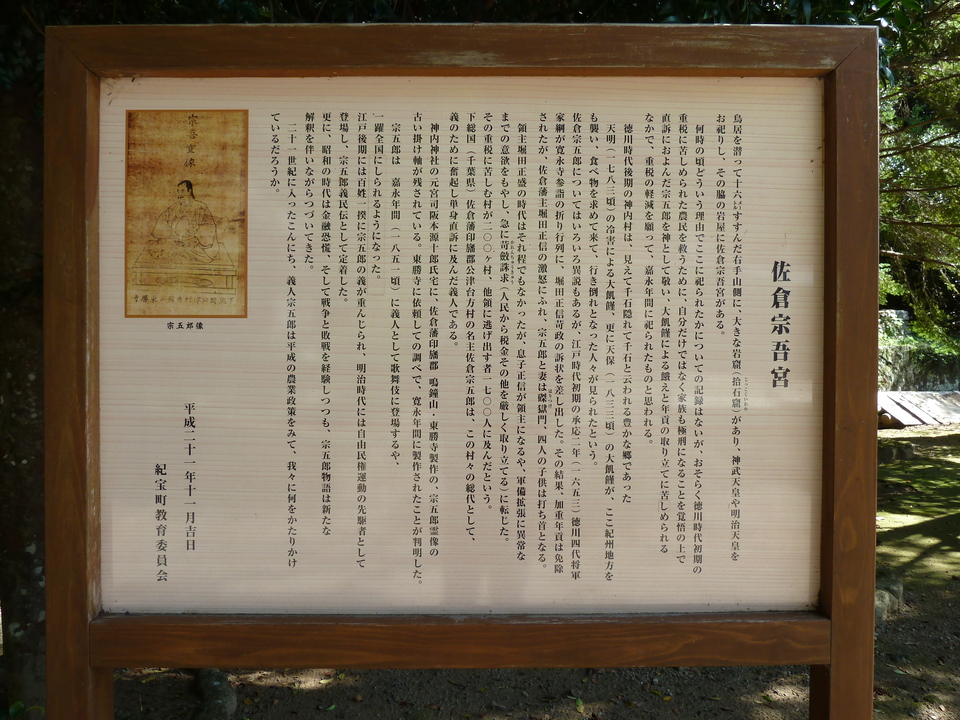 佐倉宗吾宮
鳥居を潜って十六㍍すすんだ右手山側に、大きな岩窟(拾石窟)があり、神武天皇や明治天皇を
お祀りし、その脇の岩屋に佐倉宗吾宮がある。
何時の頃どういう理由でここに祀られたかについての記録はないが、おそらく徳川時代初期の
重税に苦しめられた農民を救うために、自分だけではなく家族も極刑になることを覚悟の上で
直訴におよんだ宗五郎を神として敬い、大飢饉による餓えと年貢の取り立てに苦しめられる
なかで、重税の軽減を願って、嘉永年間に祀られたものと思われる。
徳川時代後期の神内村は、見えて千石隠れて千石と云われる豊かな郷であった
天明(一七八三頃)の冷害による大飢饉、更に天保(一八三三頃)の大飢饉が、ここ紀州地方を
も襲い、食べ物を求めて来て、行き倒れとなった人々が見られたという。
佐倉宗五郎についてはいろいろ異説もあるが、江戸時代初期の承応二年(一六五三)徳川四代将軍
家綱が寛永寺参詣の折り行列に、堀田正信苛政の訴状を差し出した。その結果、加重年貢は免除
されたが、佐倉藩主堀田正信の激怒にふれ、宗五郎と妻は磔獄門、四人の子供は打ち首となる。
領主堀田正盛の時代はそれ程でもなかったが、息子正信が領主になるや、軍備拡張に異常な
までの意欲をもやし、急に苛斂誅求(人民から税金その他を厳しく取り立てる)に転じた。
その重税に苦しむ村が二〇〇ヶ村、他領に逃げ出す者一七〇〇人に及んだという。
下総国(千葉県)佐倉藩印旛郡公津台方村の名主佐倉宗五郎は、この村々の総代として、
義のために奮起し単身直訴に及んだ義人である。
神内神社の元宮司阪本源十郎氏宅に、佐倉藩印旛郡 鳴鐘山・東勝寺製作の、宗五郎霊像の
古い掛け軸が残されている。東勝寺に依頼しての調べで、寛永年間に製作されたことが判明した。
宗五郎は 嘉永年間(一八五一頃)に義人として歌舞伎に登場するや、
一躍全国にしられるようになった。
江戸後期には百姓一揆に宗五郎の義が重んじられ、明治時代には自由民権運動の先駆者として
登場し、宗五郎義民伝として定着した。
更に、昭和の時代は金融恐慌、そして戦争と敗戦を経験しつつも、宗五郎物語は新たな
解釈を伴いながらつづいてきた。
二十一世紀に入ったこんにち、義人宗五郎は平成の農業政策をみて、我々に何をかたりかけ
ているだろうか。
平成二十一年十一月吉日
紀宝町教育委員会
宗吾霊像
宗五郎像